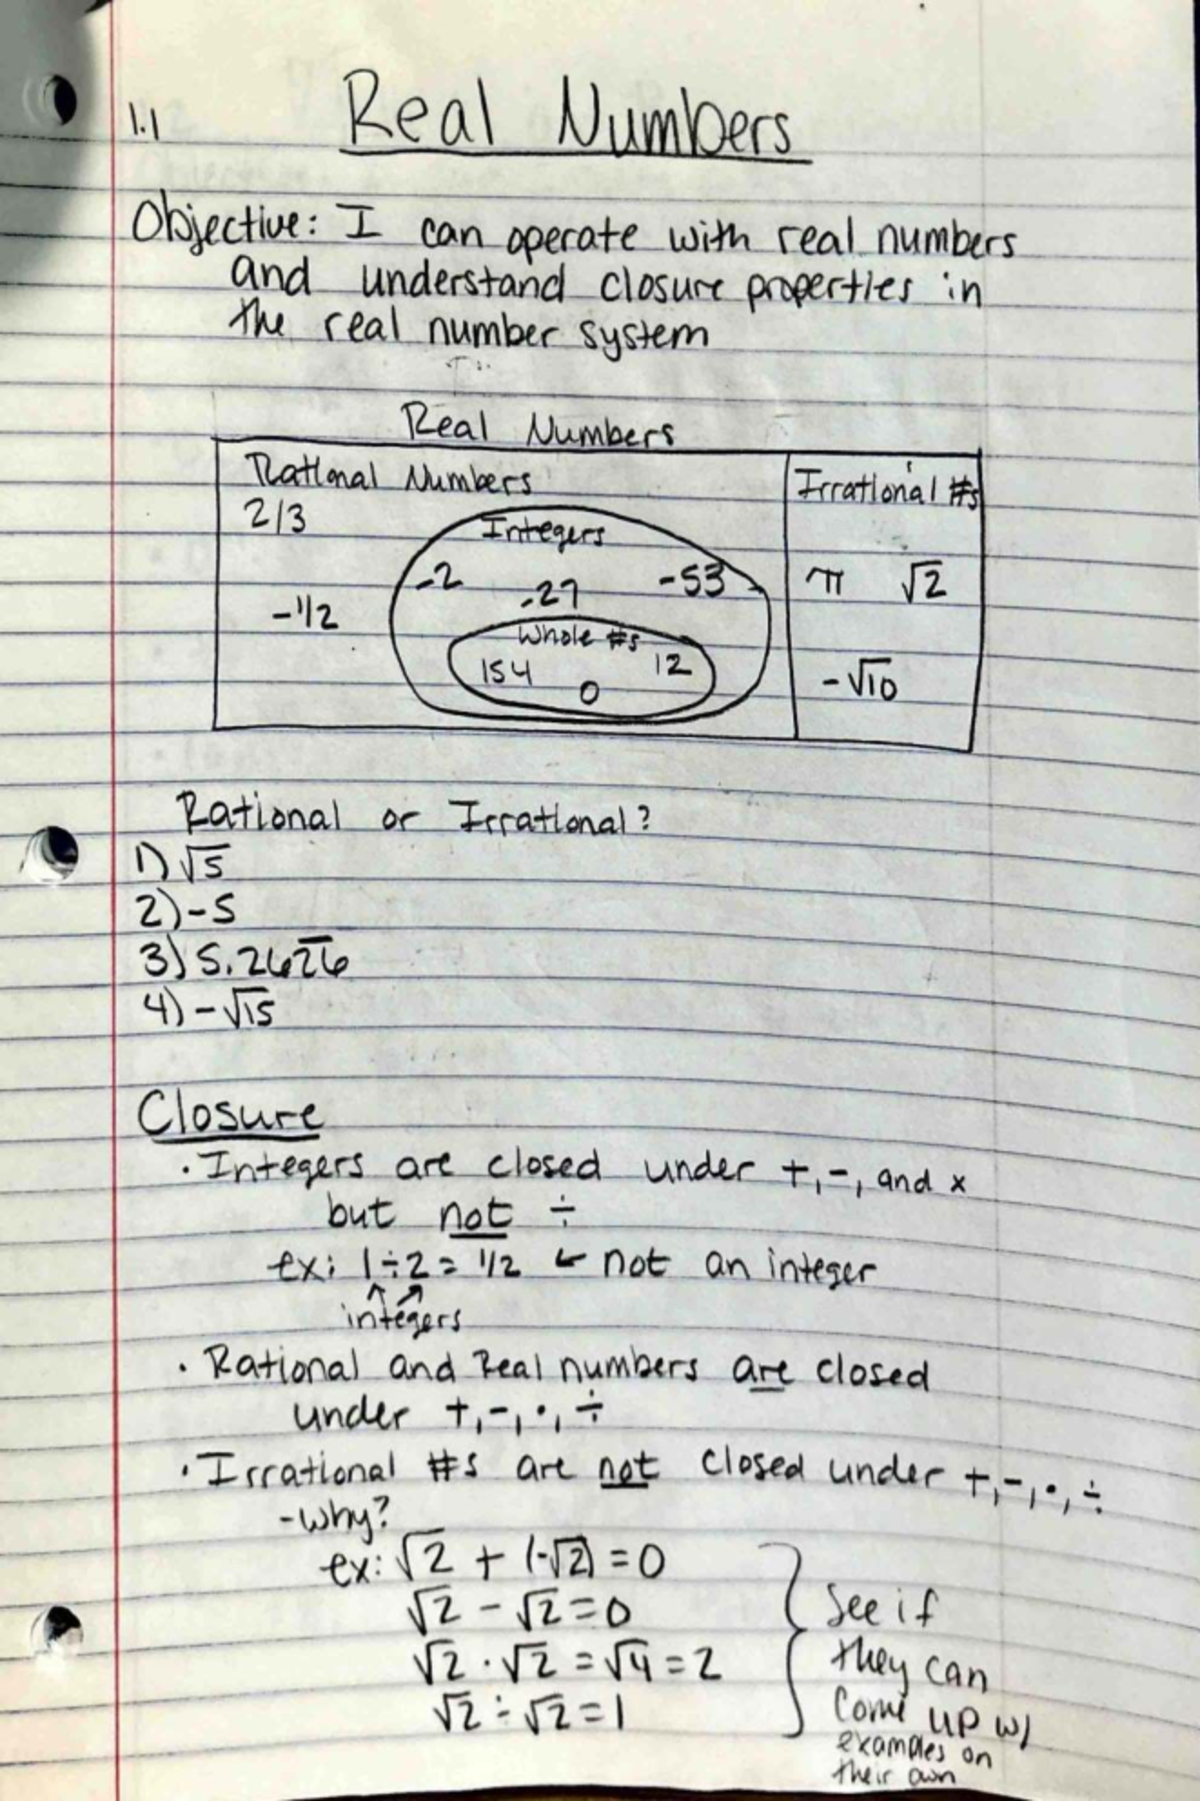 1.1 Real Numbers
Objective: I can operate with real numbers
and understand closure properties in
the real number system
Real Numbers
Rational Numbers Irrational #s
2/3
Integers
-2 -27 -53 π √2
-1/2
Whole #s
154 0 12 -√10
Rational or Irrational?
1) √5
2) -5
3) 5.262̅6̅
4) -√15
Closure
· Integers are closed under +, -, and ×
but not ÷
ex: 1÷2 = 1/2 ← not an integer
integers
· Rational and Real numbers are closed
under +, -, ·, ÷
· Irrational #s are not closed under +, -, ·, ÷
- why?
ex: √2 + (-√2) = 0
√2 - √2 = 0
√2 · √2 = √4 = 2
√2 ÷ √2 = 1
See if
they can
come up w/
examples on
their own